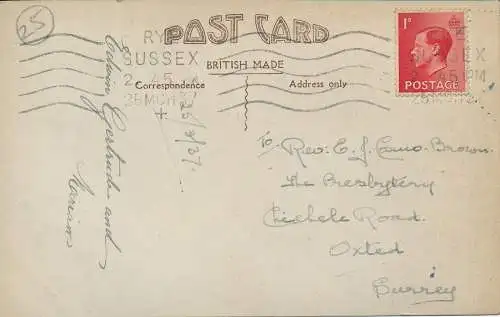 25
POST CARD
BRITISH MADE
Correspondence
Address only
RYE
SUSSEX
2 45 PM
25 MCH 37
1D
POSTAGE
SUSSEX
45 PM
25/3/37.
Edwin Gertrude and
Marion
To Rev: E. J. Cano-Brown.
The Presbytery
Chichele Road.
Oxted
Surrey